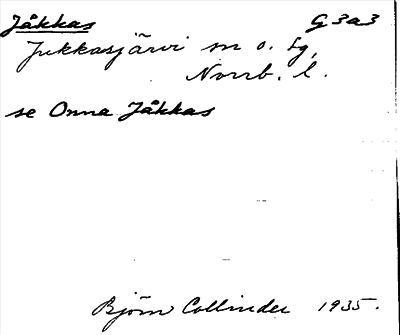 Jåkkas G3a3
Jukkasjärvi sn o. lg,
Norrb. l.
se Onna Jåkkas
Björn Collinder 1935.